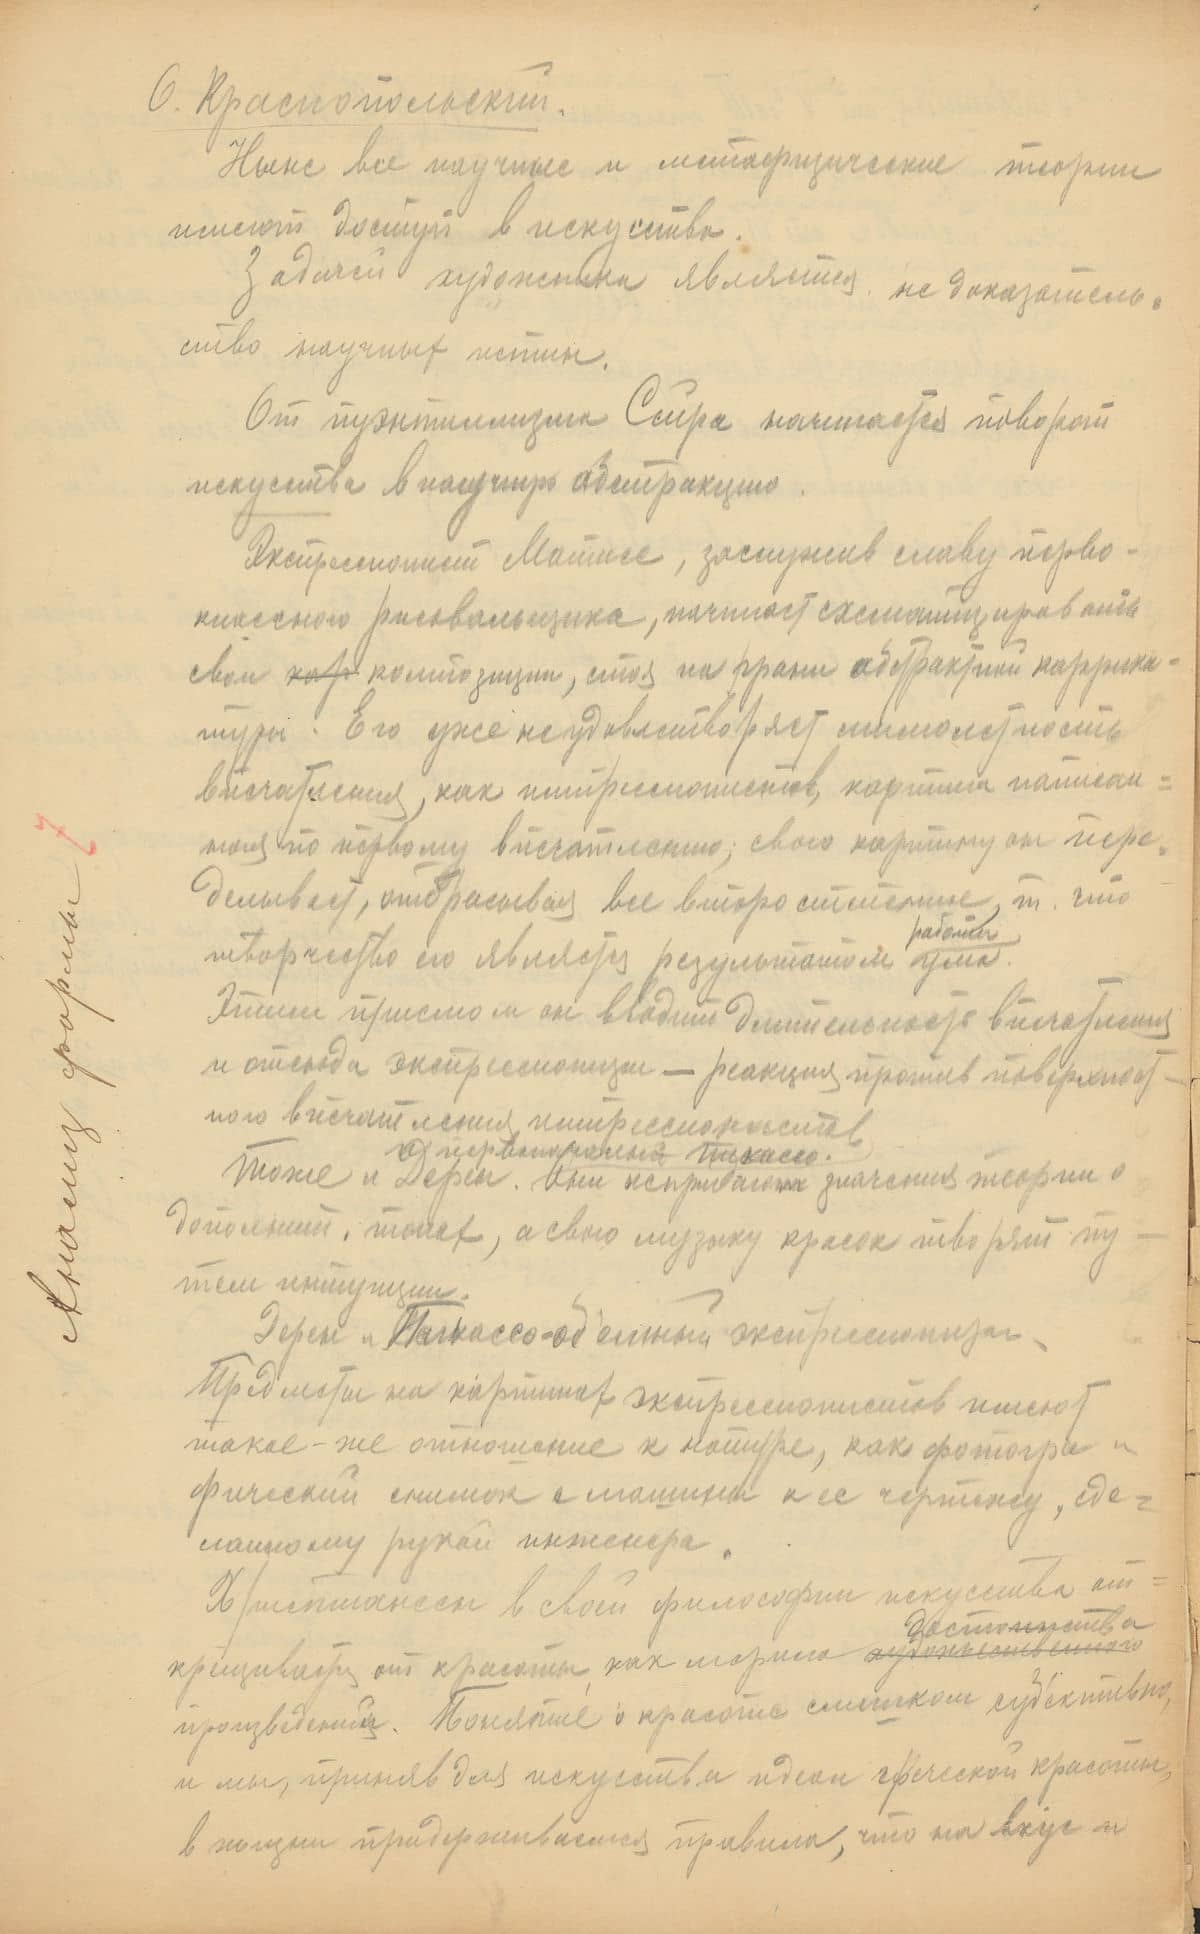 О. Краснопольский.
Ныне все научные и метафизические теории
имеют доступ в искусство.
Задачей художника является не доказатель-
ство научных истин.
От пуэнтиллизма Сейра начинается поворот
искусства в научную абстракцию.
Экспрессионист Матисс, заслужив славу перво-
классного рисовальщика, начинает схематизировать
свои композиции, стоя на грани абстрактной каррика-
туры. Его уже не удовлетворяет мимолетность
впечатления, как импрессионистов, картина написан=
ная по первому впечатлению; свою картину он пере-
делывает, отбрасывая все второстепенное, т. что
творчество его является результатом работы ума.
Этим приемом он вводит длительность впечатления
и отсюда экспрессионизм — реакция против поверхност-
ного впечатления импрессионистов
и первоначальный Пикассо.
Тоже и Дерен. Они не придают значения теории о
дополнит. тонах, а свою музыку красок творят пу-
тем интуиции.
Дерен и Пикассо-объемный экспрессионизм.
Предметы на картинах экспрессионистов имеют
такое-же отношение к натуре, как фотогра-
фический снимок с машины к ее чертежу, сде-
ланному рукой инженера.
Христиансен в своей философии искусства от=
достоинства
крещивается от красоты, как мерила художественного
произведений. Понятие о красоте слишком субъективно,
и мы, приняв для искусства идеал греческой красоты,
в жизни придерживаемся правила, что на вкус и
Анализ формы 7